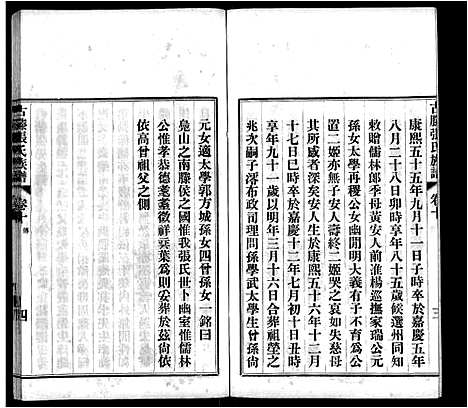 古滕張氏族譜 卷十 三
康熙五十五年九月十一日子時卒嘉慶五年
八月二十八日卯時享年八十五歲候選州同知
敕贈儒林郎季母黃安人前淮楊巡撫家瑞公元
孫女太學再稷公女幽閒明大義有子不育為公
置二姬亦無子安人壽終二姬哭之哀如失慈母
其所感者深矣安人生於康熙五十六年十三月
十七日巳時卒於嘉慶十二年七月初十日丑時
享年九十一歲以明年三月十六日合葬祖塋之
兆次嗣子澪布政司理問孫學武太學生曾孫尙
元女適太學郭方城孫女四曾孫女一銘曰
鳧山之南滕侯之國惟我張氏世卜幽室惟儒林
公惟孝恭德耄耋徵祥奕葉為則妥葬於茲尙依
依高曾祖父之側
古滕張氏族譜 卷十 傳 四